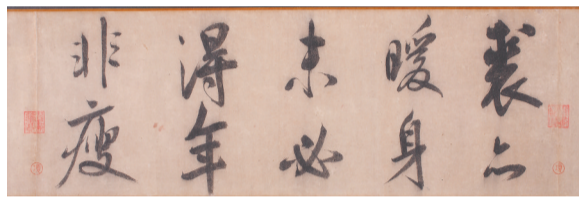 裘亦
暖身
未必
得年
非瘦